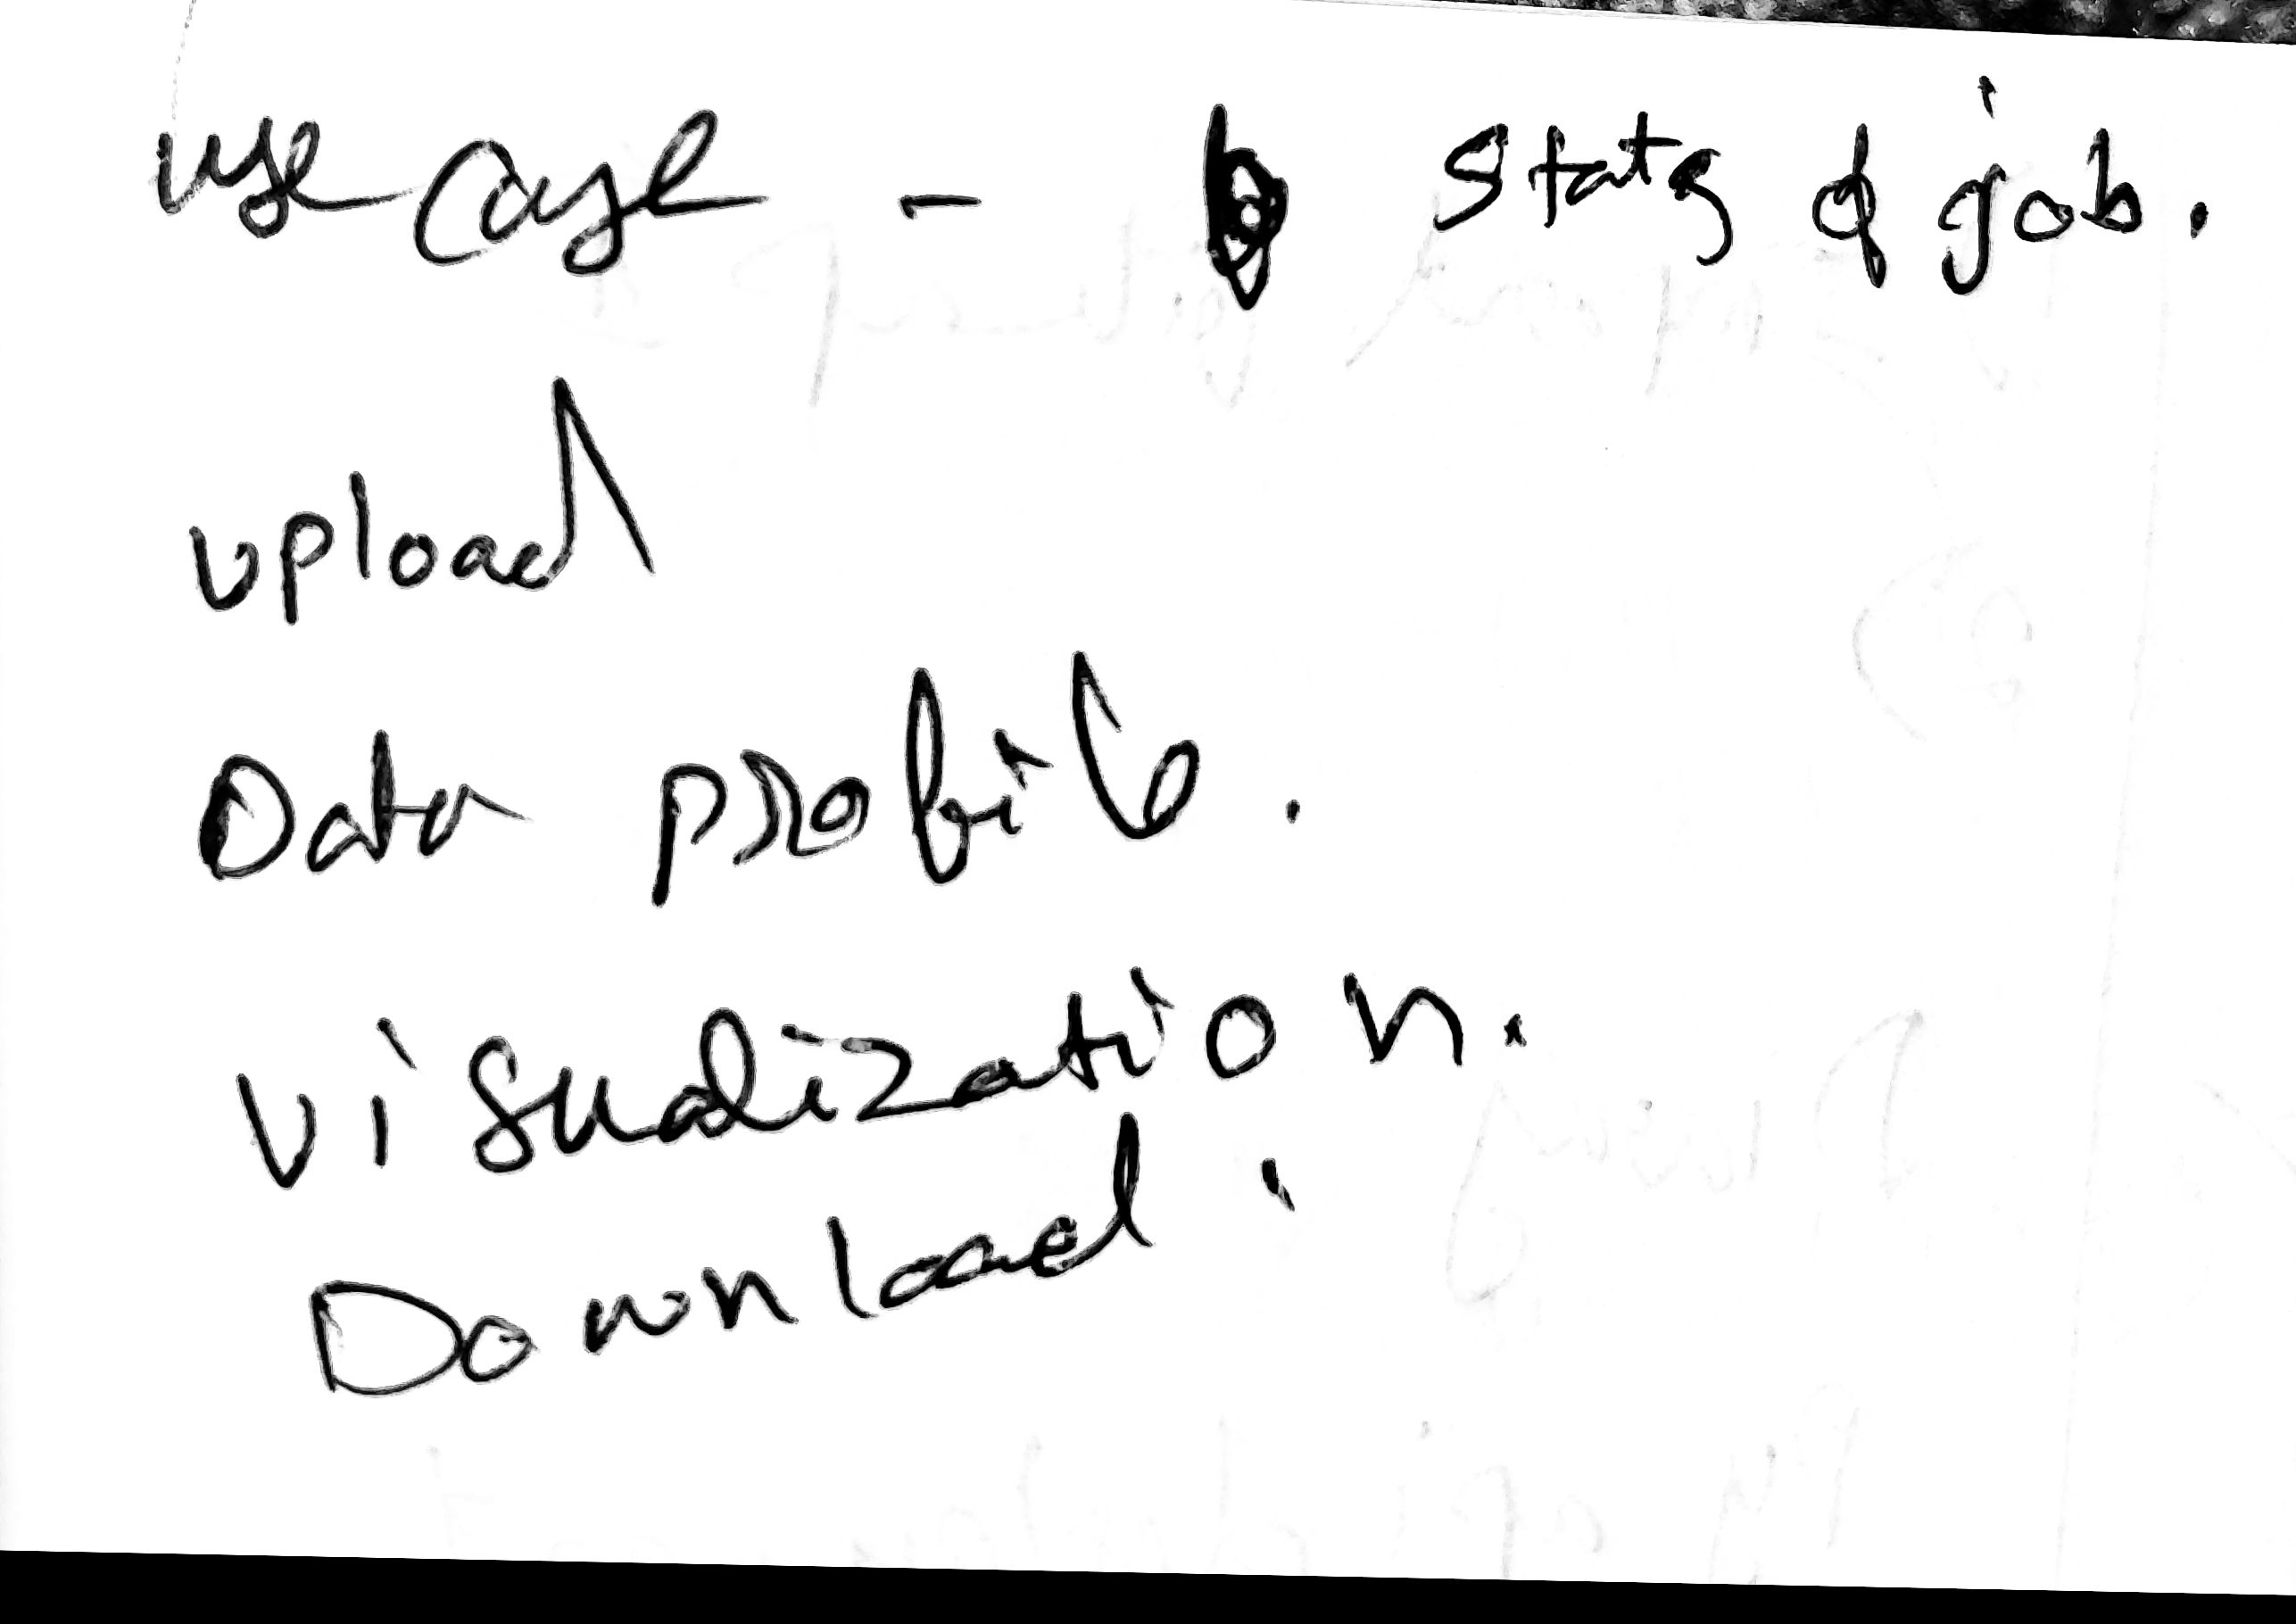 use case - stats of job.
upload
Data profile.
visualization.
Download.